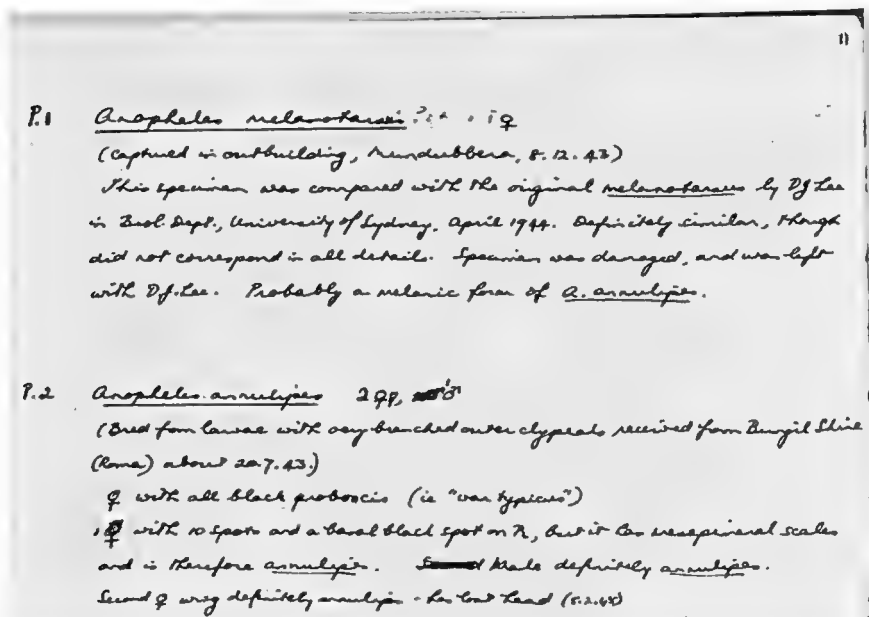 11
P.1 Anopheles melanotarsis ♀
(Captured in outbuilding, Mundubbera, 8.12.43)
This specimen was compared with the original melanotarsus by DJ Lee
in Biol. Dept., University of Sydney, April 1944. Definitely similar, though
did not correspond in all details. Specimen was damaged, and was left
with D.J. Lee. Probably a melanic form of A. annulipes.
P.2 Anopheles annulipes 2♀♀, ♂
(Bred from larvae with very branched outer clypeals received from Bungil Shire
(Roma) about 20.7.43.)
♀ with all black proboscis (ie "var typicus")
1♀ with 10 spots and a basal black spot on R, but it has mesepimeral scales
and is therefore annulipes. Male definitely annulipes.
Second ♀ wing definitely annulipes - has lost head